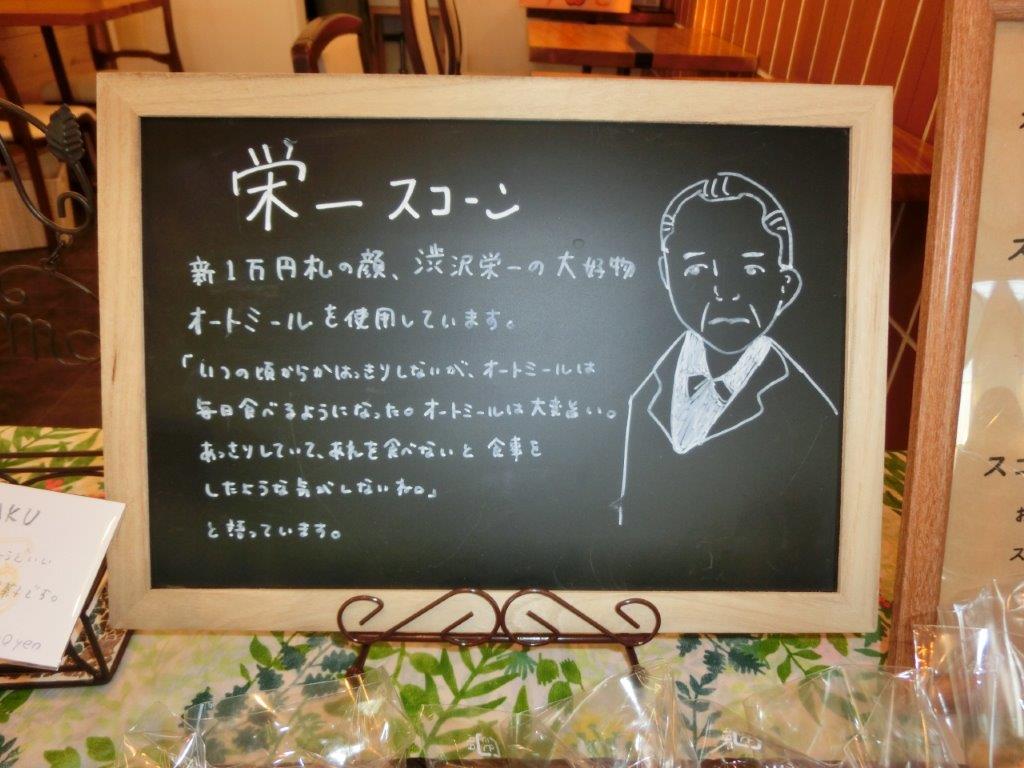 栄一 スコーン
新1万円札の顔、渋沢栄一の大好物
オートミールを使用しています。
「いつの頃からかはっきりしないが、オートミールは
毎日食べるようになった。オートミールは大変旨い。
あっさりしていて、あれを食べないと 食事を
したような気がしないね。」
と語っています。
AKU
yen
スコ